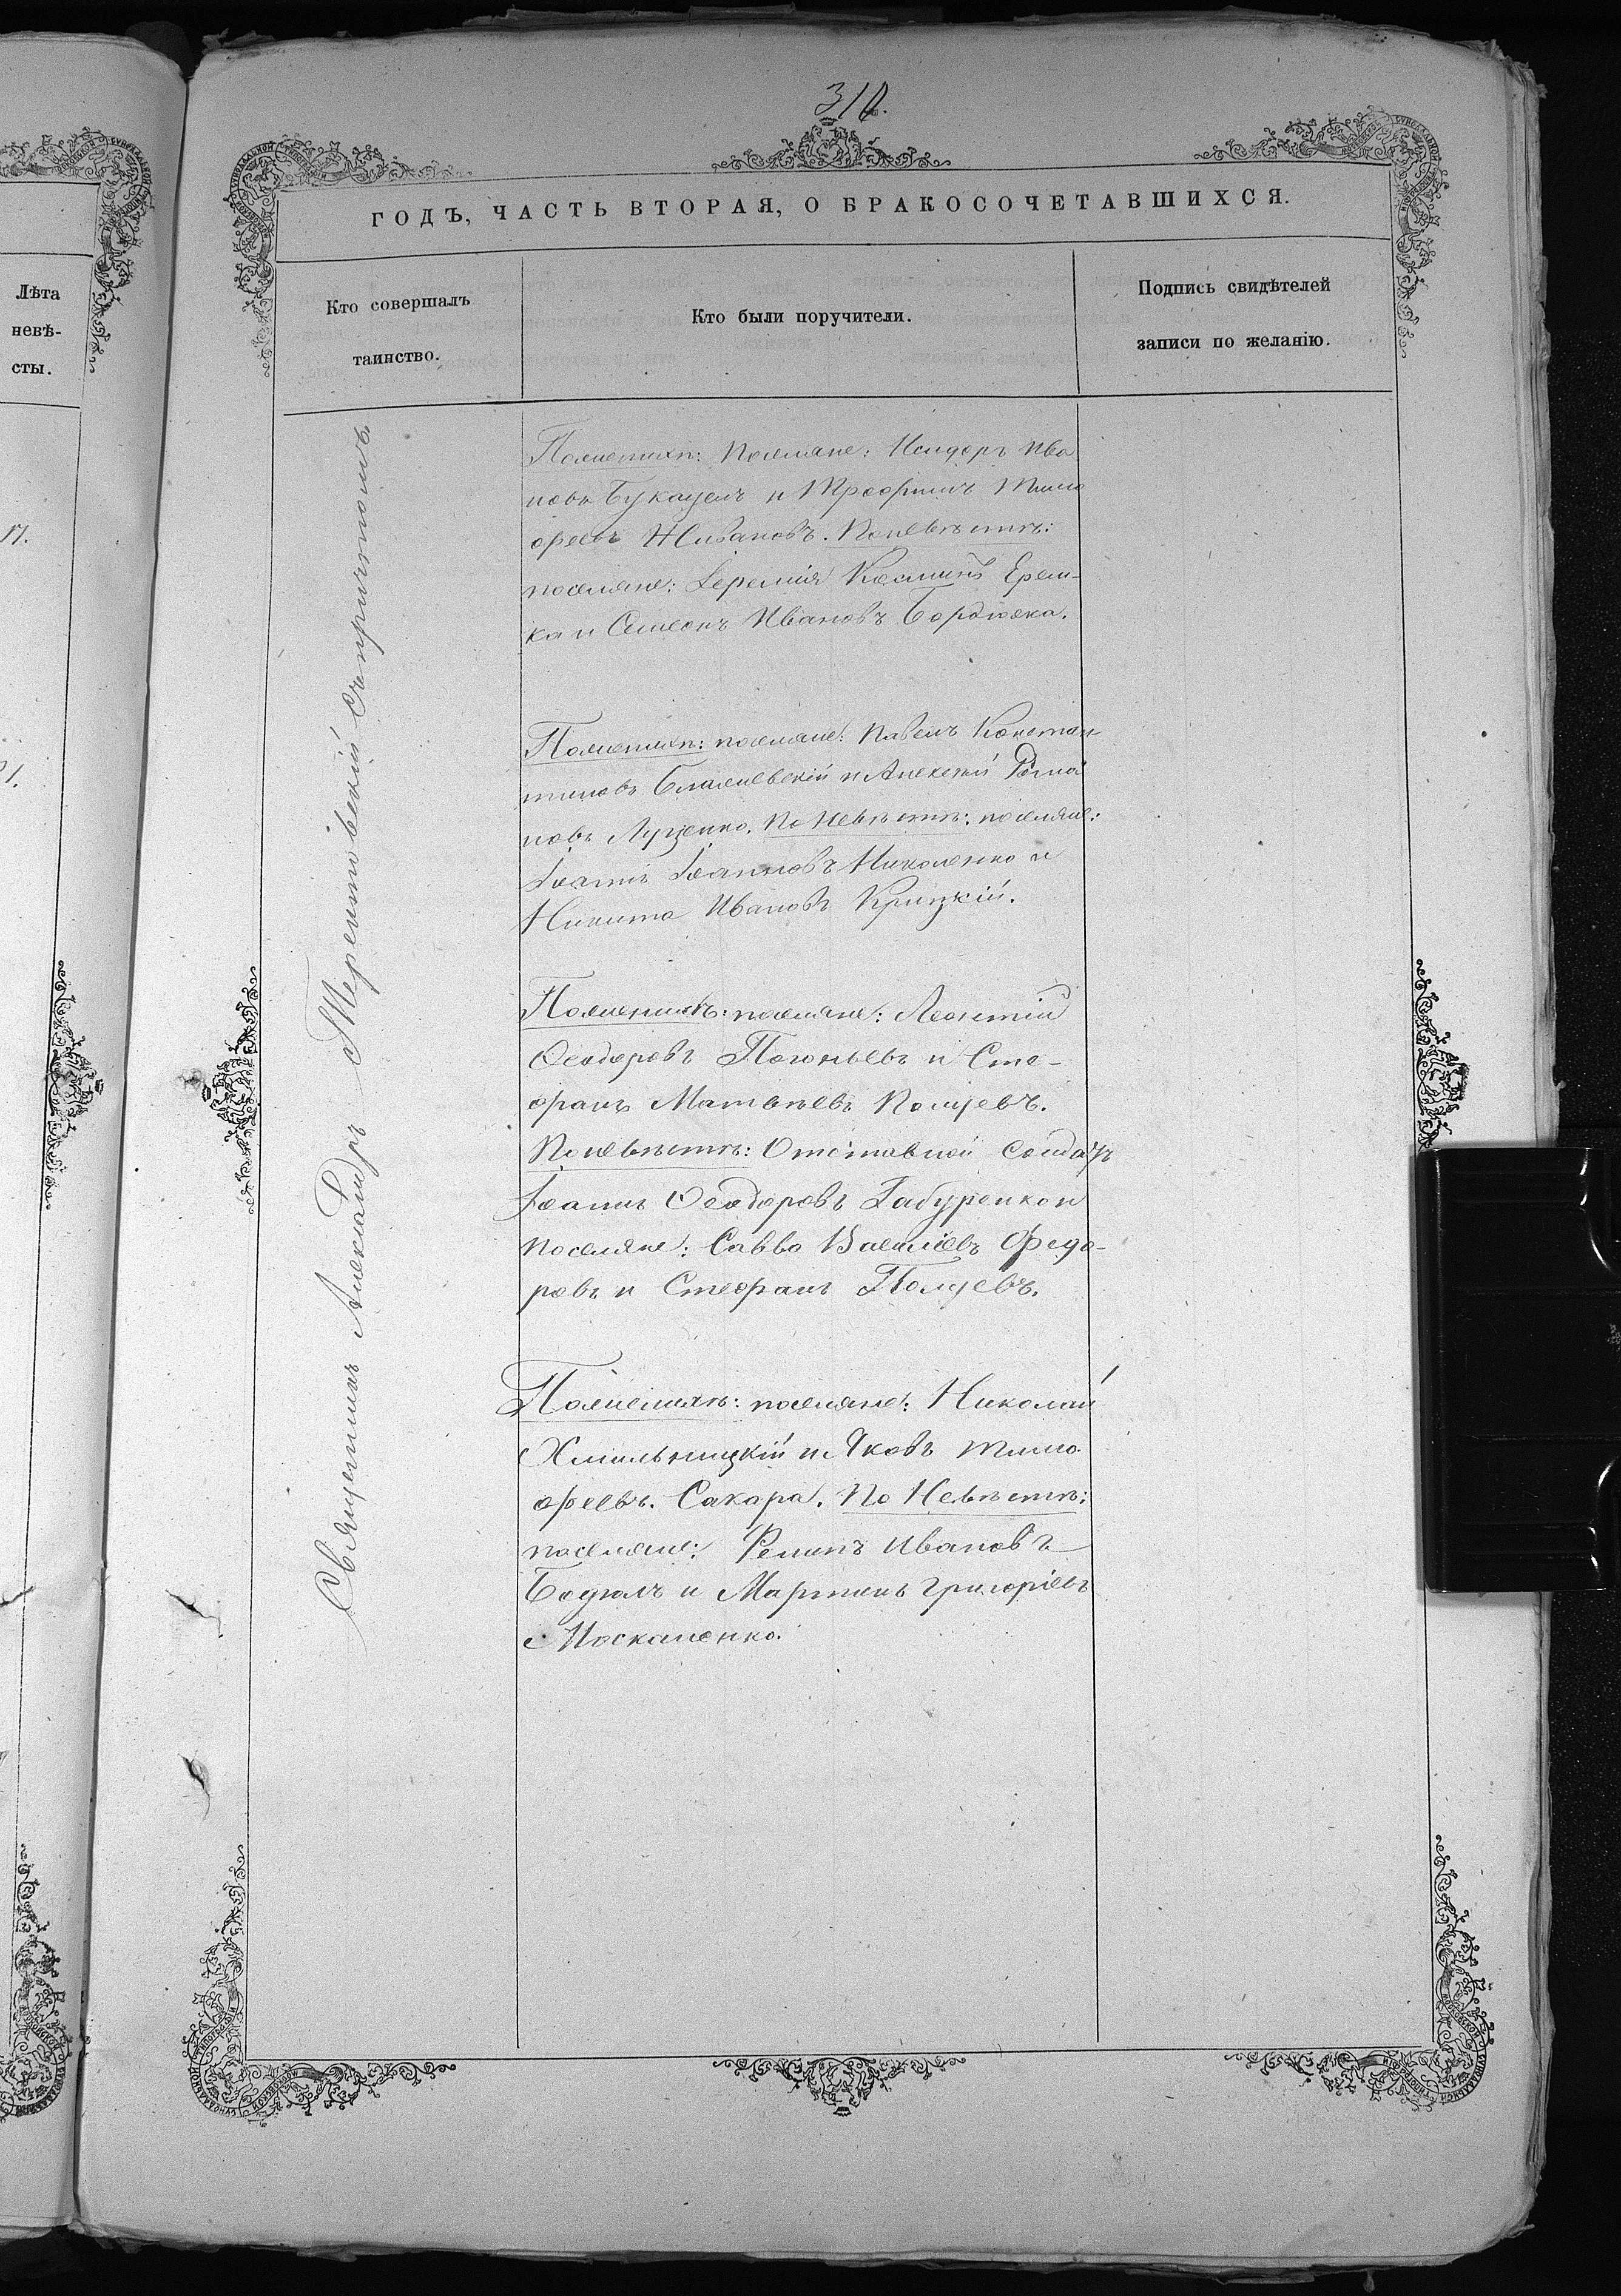 310.
ГОДЪ, ЧАСТЬ ВТОРАЯ, О БРАКОСОЧЕТАВШИХСЯ.
Лѣта
невѣ-
сты.
Кто совершалъ
таинство.
Кто были поручители.
Подпись свидѣтелей
записи по желанію.
Священникъ Александръ Терентовскій съ причтомъ.
По женихѣ: поселяне: Исидоръ Ива
новъ Букацелъ и Трофимъ Тимо
феевъ Живановъ. По невѣстѣ:
поселяне: Іеремія Косминъ Ерем-
ка и Симеонъ Ивановъ Бордюжа.
По женихѣ: поселяне: Павелъ Констан-
тиновъ и Алексѣй Рома
новъ Луценко. По невѣстѣ: поселяне:
Іоаннъ Іоанновъ Николенко и
Никита Ивановъ Крицкій.
По женихѣ: поселяне: Леонтій
Ѳеодоровъ и Сте-
фанъ Матвѣевъ
По невѣстѣ: Отставной солдатъ
Іоаннъ Ѳеодоровъ Габуренко и
поселяне: Савва Василіевъ Федо-
ровъ и Стефанъ
По женихѣ: поселяне: Николай
Хмильницкій и Яковъ Тимо
феевъ Сакара. По невѣстѣ:
поселяне: Ивановъ
Бодюлъ и Мартинъ Григоріевъ
Москаленко.